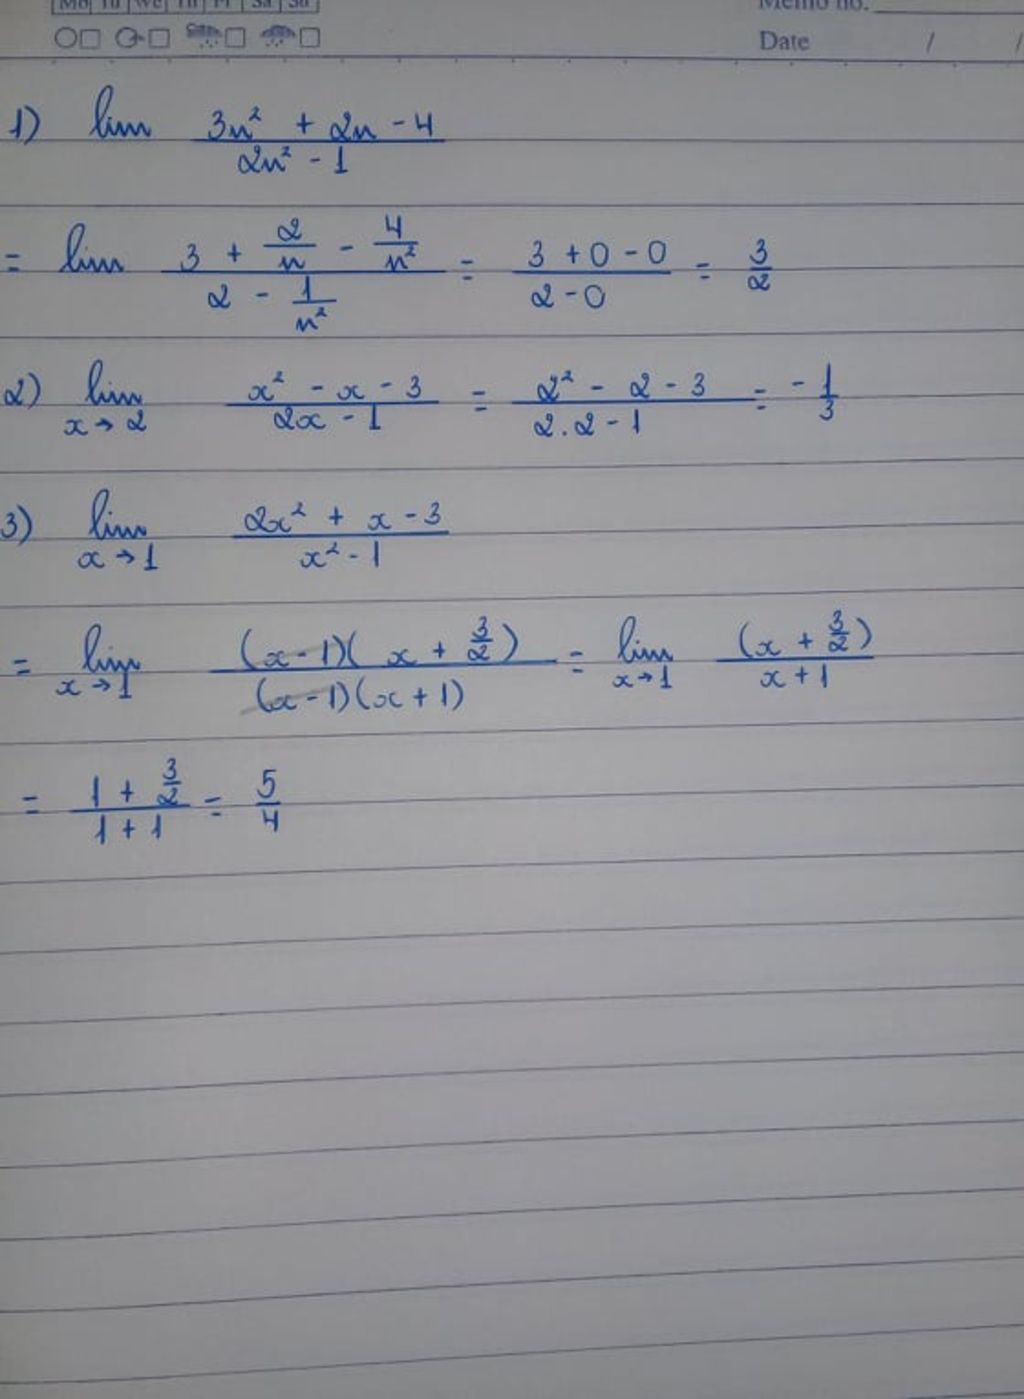 Mo Tu We Th Fr Sa Su
Memo no.
Date / /
1) lim (3n² + 2n - 4)/(2n² - 1)
= lim (3 + 2/n - 4/n²)/(2 - 1/n²) = (3 + 0 - 0)/(2 - 0) = 3/2
2) lim x→2 (x² - x - 3)/(2x - 1) = (2² - 2 - 3)/(2.2 - 1) = -1/3
3) lim x→1 (2x² + x - 3)/(x² - 1)
= lim x→1 (x-1)(x + 3/2)/(x-1)(x+1) = lim x→1 (x + 3/2)/(x + 1)
= (1 + 3/2)/(1 + 1) = 5/4